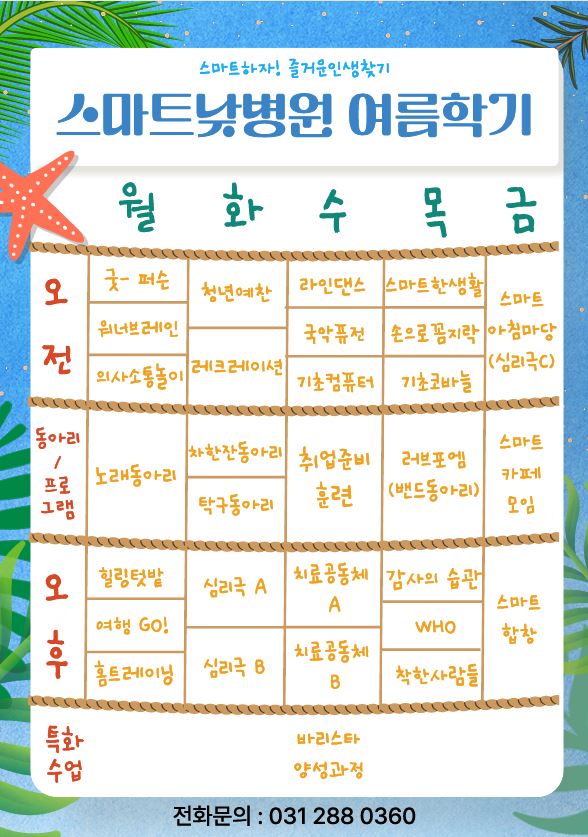 스마트하자! 즐거운인생찾기
스마트낮병원 여름학기
월 화 수 목 금
오전
굿- 퍼슨
워너브레인
의사소통놀이
청년예찬
레크레이션
라인댄스
국악퓨전
기초컴퓨터
스마트한생활
손으로꼼지락
기초코바늘
스마트
아침마당
(심리극C)
동아리
/
프로
그램
노래동아리
차한잔동아리
탁구동아리
취업준비
훈련
러브포엠
(밴드동아리)
스마트
카페
모임
오후
힐링텃밭
여행 GO!
홈트레이닝
심리극 A
심리극 B
치료공동체
A
치료공동체
B
감사의 습관
WHO
착한사람들
스마트
합창
특화
수업
바리스타
양성과정
전화문의 : 031 288 0360